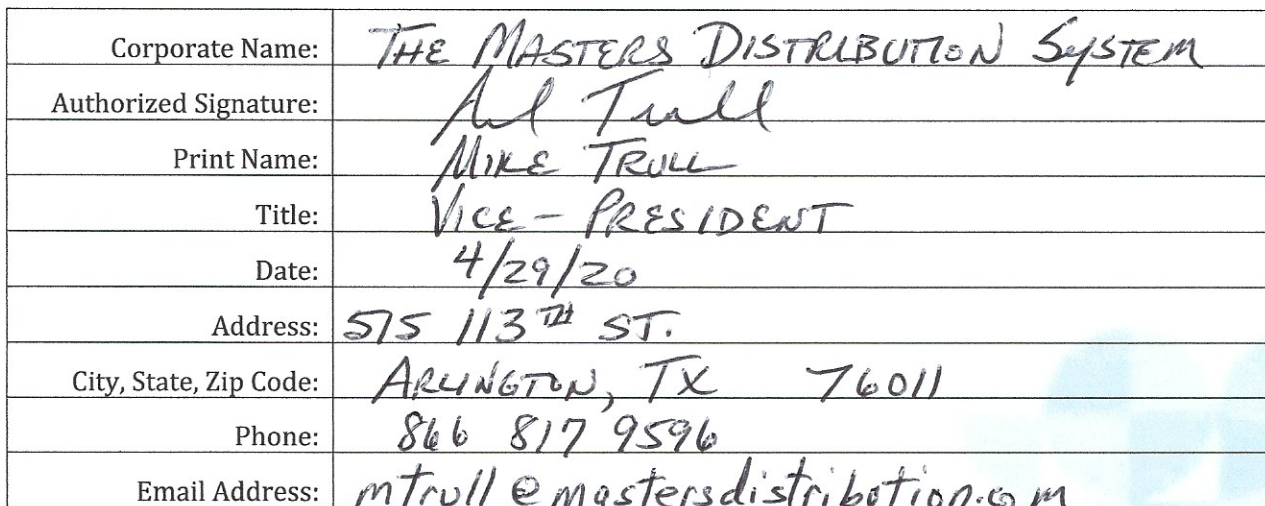 Corporate Name: THE MASTERS DISTRIBUTION SYSTEM
Authorized Signature: Trull
Print Name: MIKE TRULL
Title: VICE - PRESIDENT
Date: 4/29/20
Address: 575 113TH ST.
City, State, Zip Code: ARLINGTON, TX 76011
Phone: 866 817 9596
Email Address: mtrull@mastersdistribution.com